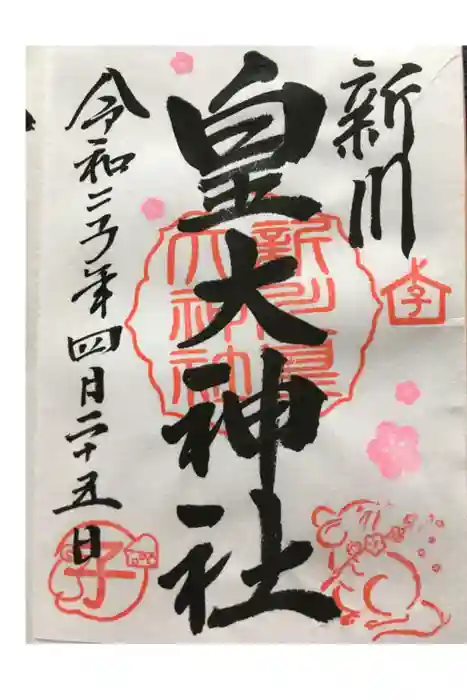 新川
皇大神社
新川皇
大神社
令和二子年四月二十五日
子
子